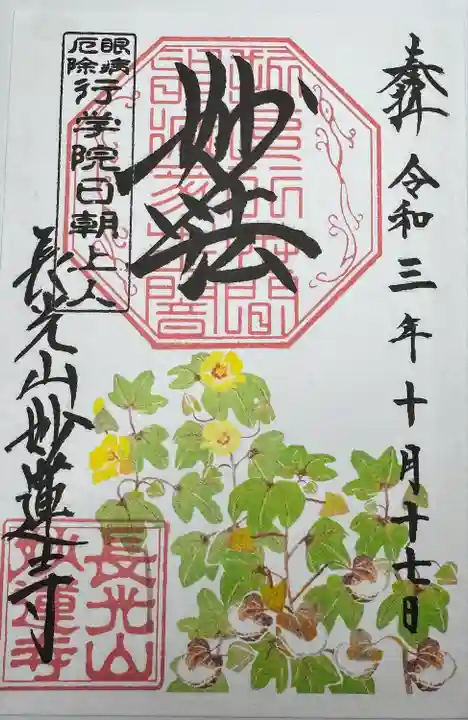 奉拝
令和三年十月十七日
妙法
眼病
厄除
行学院日朝上人
長光山妙蓮寺
長光山
妙蓮寺